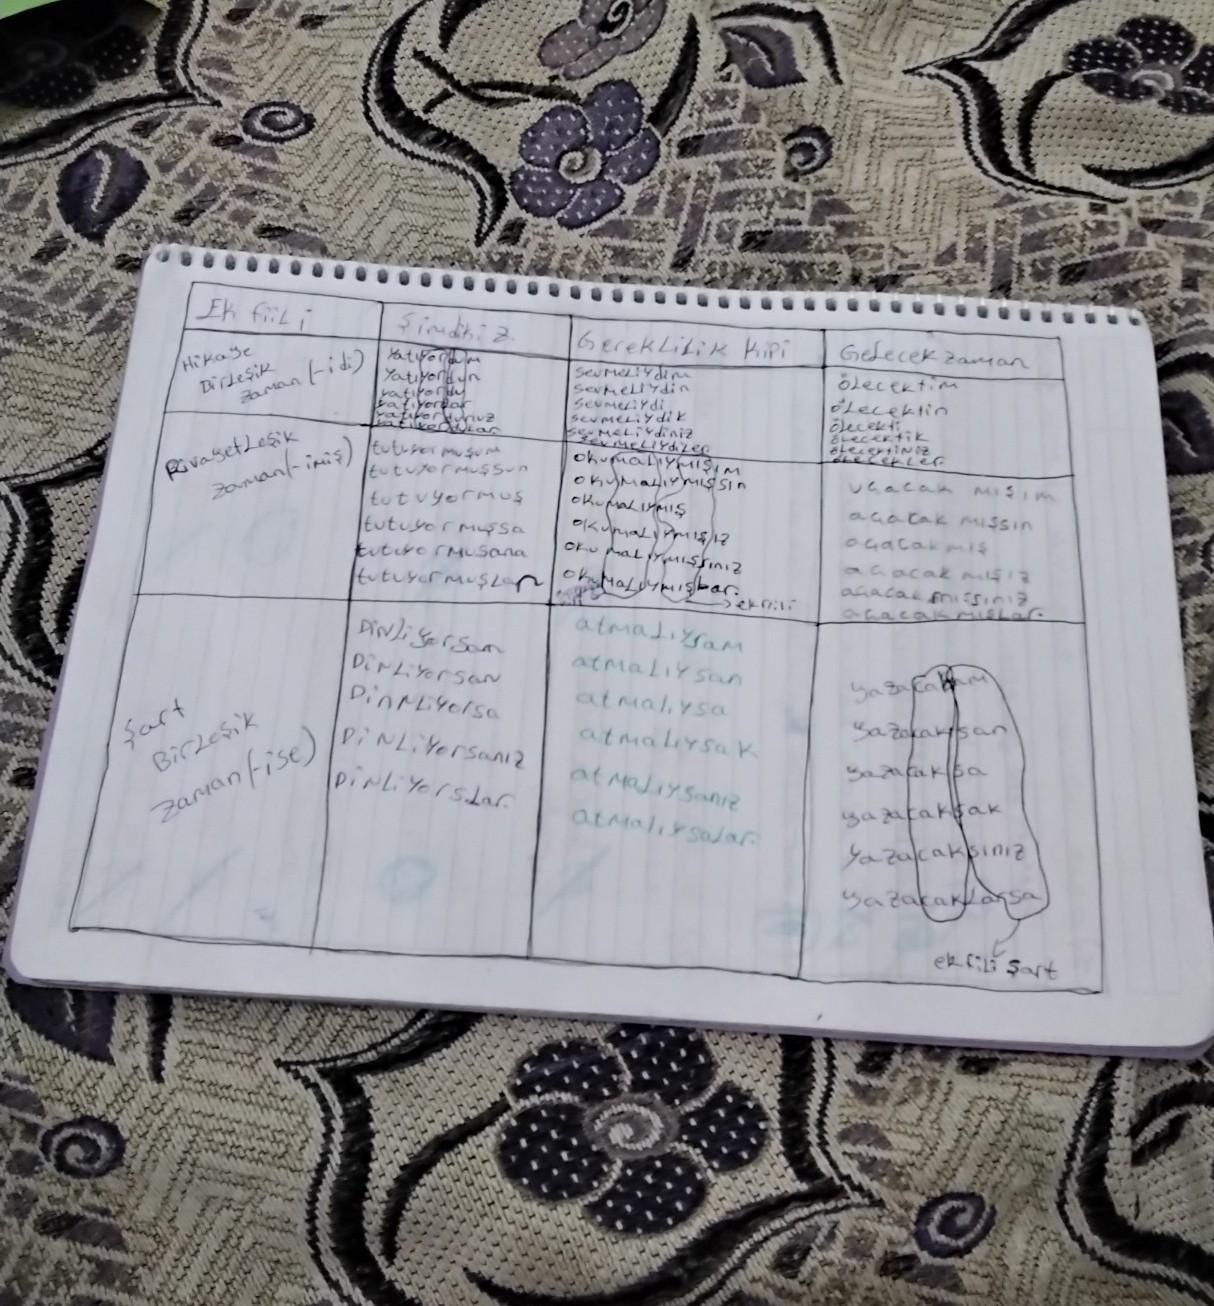 Ek fiili
Şimdiki z.
Gereklilik Kipi
Gelecek zaman
Hikaye
Birleşik
zaman (-idi)
Yatıyordum
Yatıyordun
yatıyordu
yatıyordunuz
sevmeliydim
sevmeliydin
sevmeliydi
sevmeliydik
sevmeliydiniz
sevmeliydiler
ölecektim
ölecektin
ölecekti
ölecektik
ölecektiniz
Rivayetleşik
zaman (-imiş)
tutuyormuşum
tutuyormuşsun
tutuyormuş
tutuyormuşsa
tutuyormuşlar
okumalıymışım
okumalıymışsın
okumalıymış
okumalıymışız
okumalıymışsınız
okumalıymışlar.
ekfiili
mışım
acacak mışsın
acacakmış
acacak mışız
acacak mışsınız
acacakmışlar.
Şart
Birleşik
zaman (-ise)
Dinliyorsam
Dinliyorsan
Dinnliyorsa
Dinliyorsanız
atmalıysam
atmalıysan
atmalıysa
atmalıysak
atmalıysanız
atmalıysalar.
yazacaksan
yazacaksa
yazacaksak
yazacaksınız
yazacaklarsa
ekfiili şart